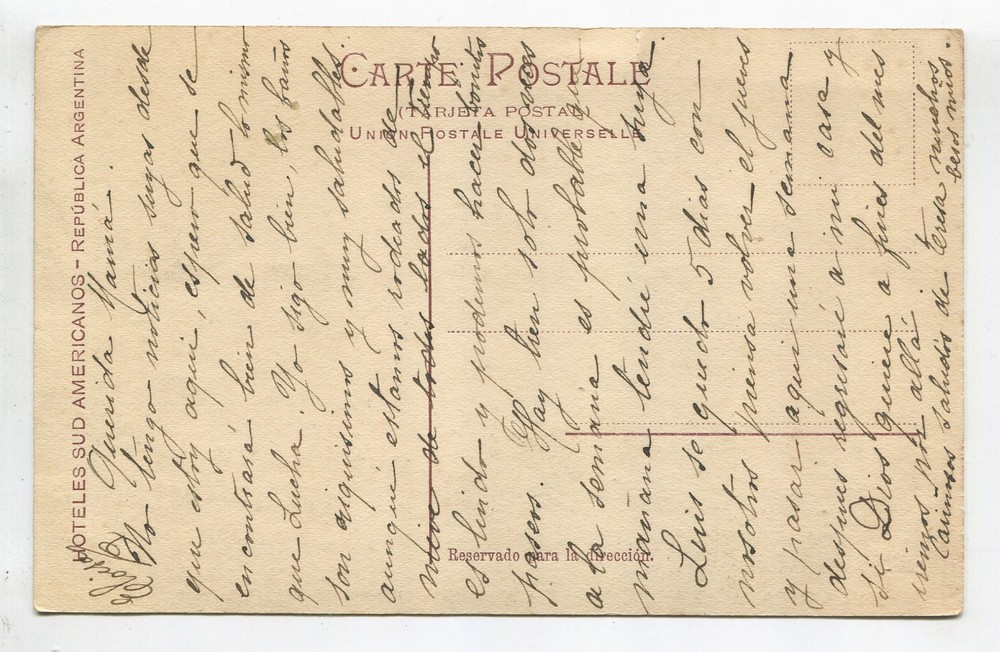 HOTELES SUD AMERICANOS – REPÚBLICA ARGENTINA
CARTE POSTALE
(TARJETA POSTAL)
UNION POSTALE UNIVERSELLE
Reservado para la dirección.
Querida Mamá.
No tengo noticias suyas desde
que estoy aquí, espero que se
encontrará bien de salud lo mismo
que Lucha. Yo sigo bien, los baños
son riquisimos y muy saludables,
aunque estamos rodeados de
nieve de todos lados el tiempo
es lindo y podemos hacer bonitos
paseos. Hay tren solo dos veces
a la semana es probable que
mañana tendré una suya.
Luis se quedo 5 dias con
nosotros piensa volver el jueves
y pasar aquí una semana
despues regresaré a mi casa y
si Dios quiere a fines del mes
iremos por allá.
Cariños saludos de Cresa muchos
besos mios.